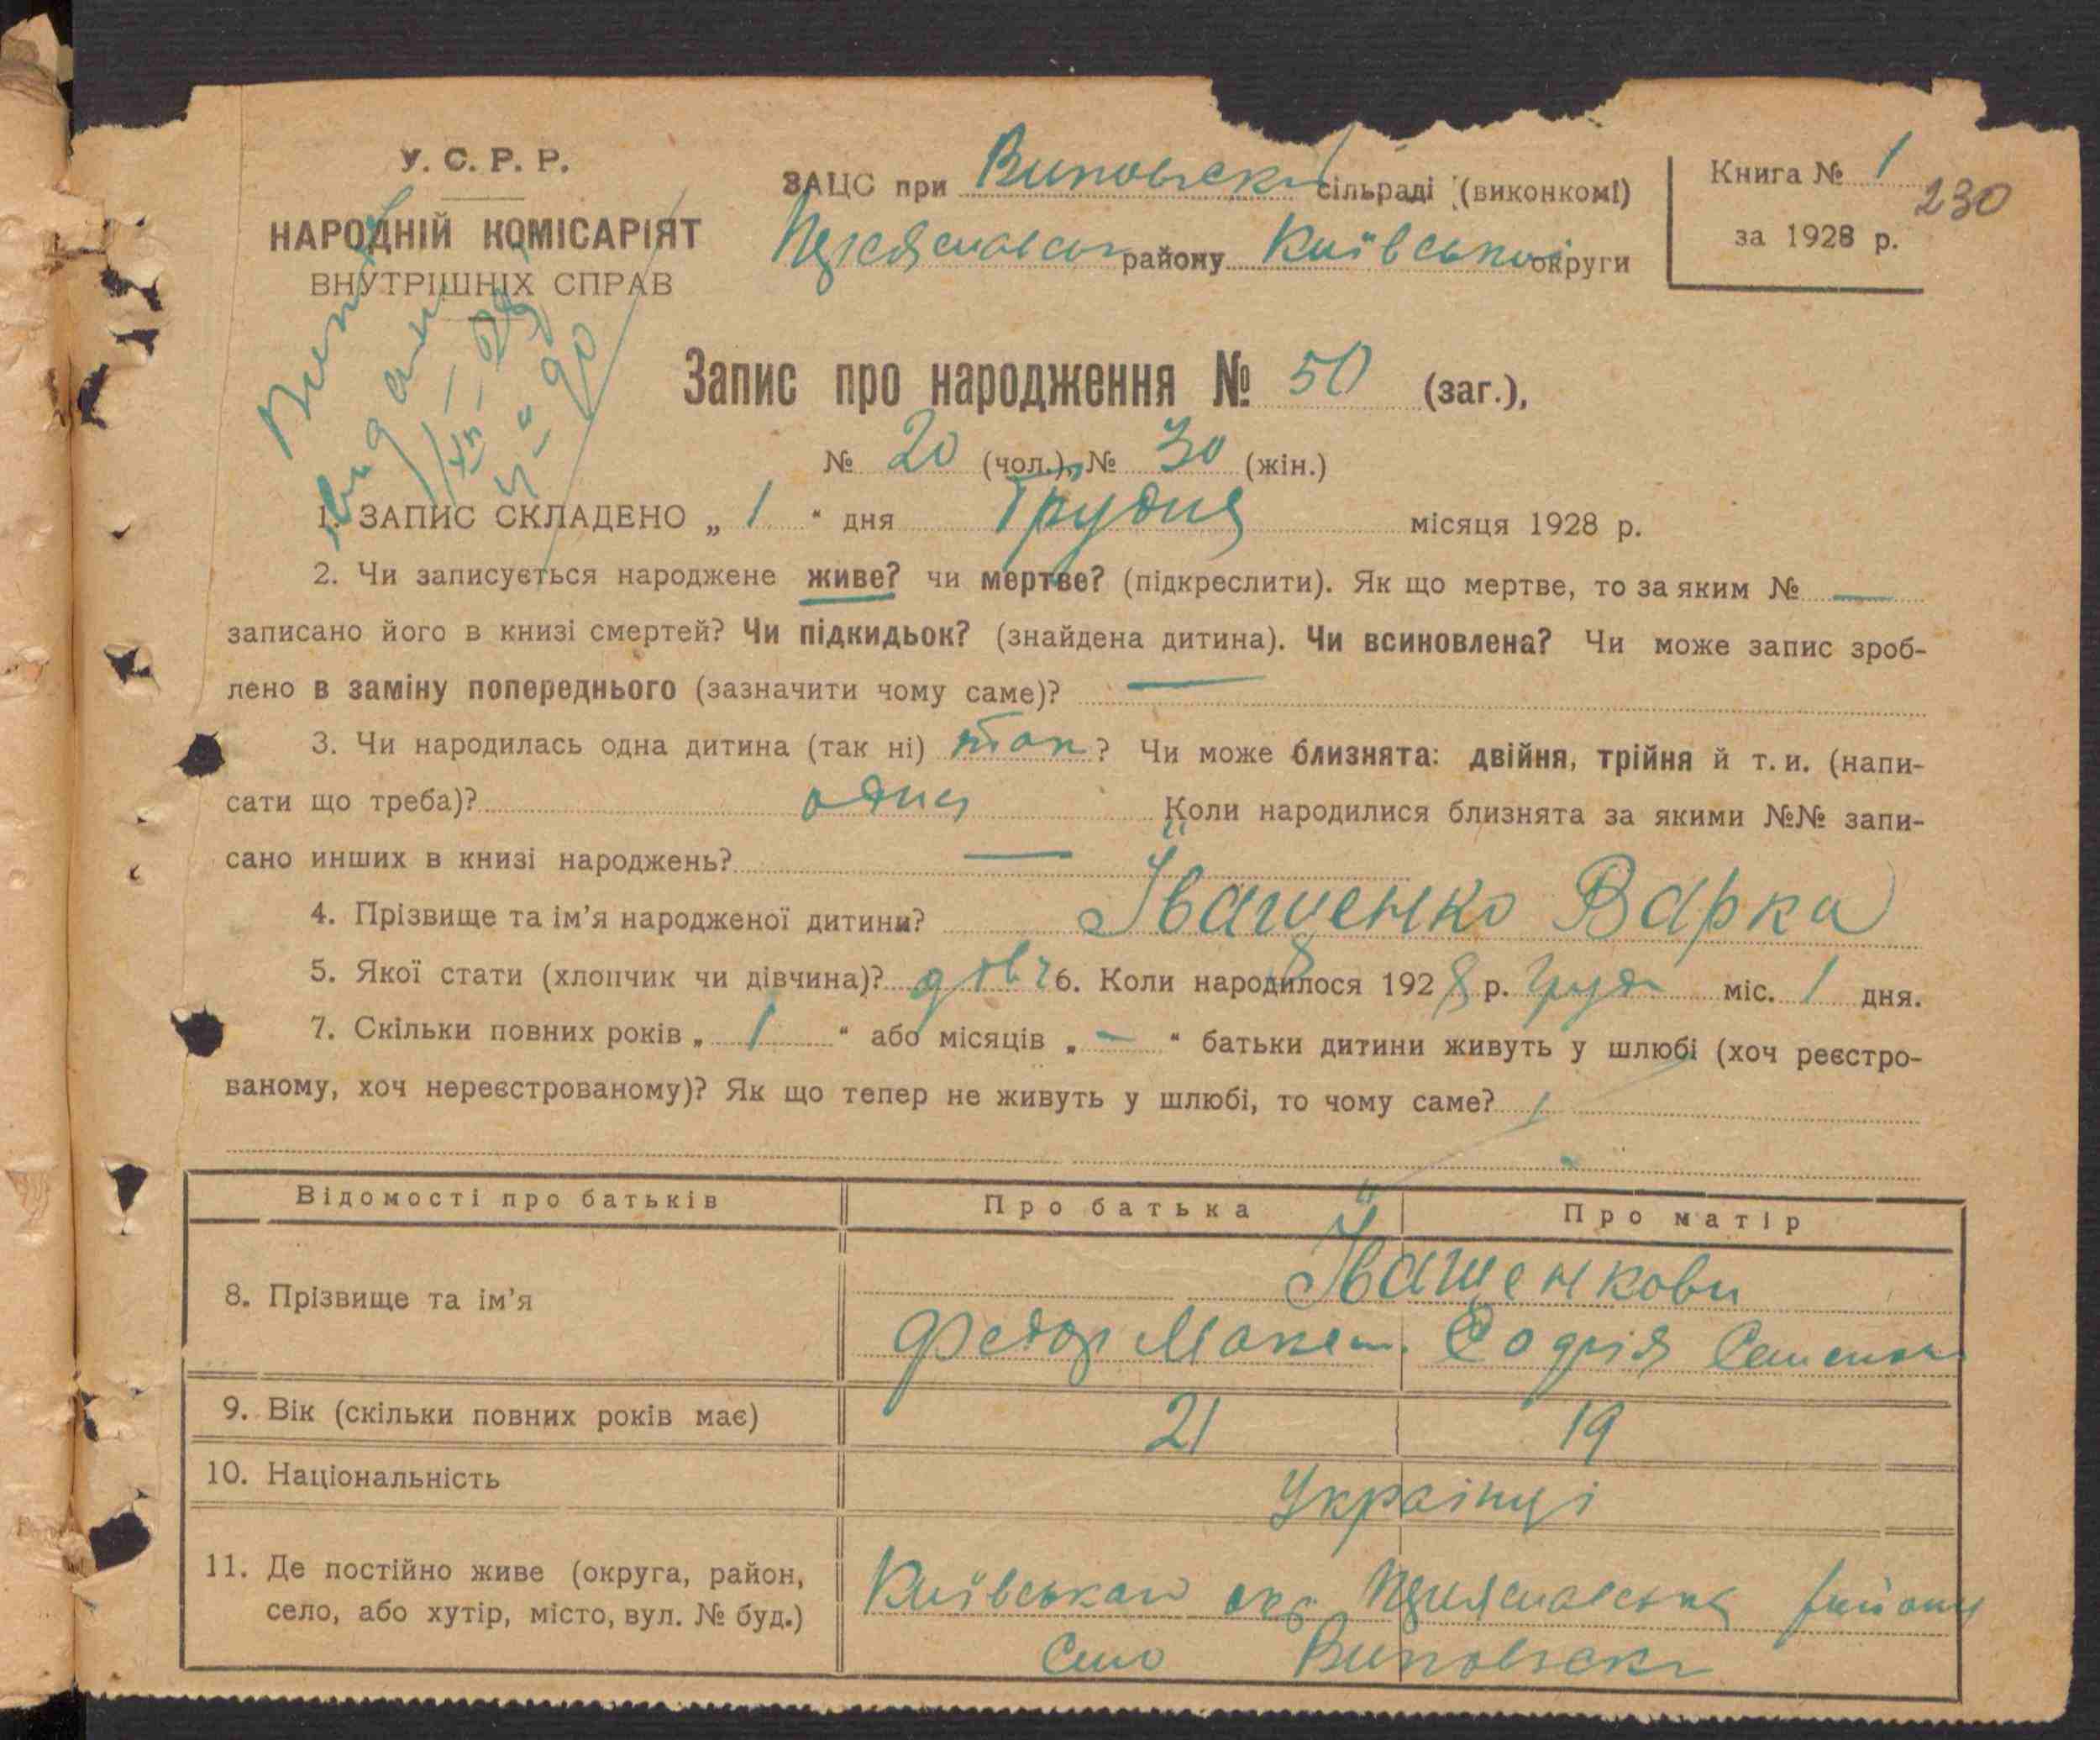 У. С. Р. Р.
НАРОДНІЙ КОМІСАРІЯТ
ВНУТРІШНІХ СПРАВ
ЗАЦС при Виповзски сільраді (виконкомі)
району Київської округи
Книга № 1
230
за 1928 р.
Запис про народження № 50 (заг.),
№ 20 (чол.), № 30 (жін.)
1. ЗАПИС СКЛАДЕНО „ 1 “ дня Грудня місяця 1928 р.
2. Чи записується народжене живе? чи мертве? (підкреслити). Як що мертве, то за яким № —
записано його в книзі смертей? Чи підкидьок? (знайдена дитина). Чи всиновлена? Чи може запис зроб-
лено в заміну попереднього (зазначити чому саме)? —
3. Чи народилась одна дитина (так ні) так? Чи може близнята: двійня, трійня й т. и. (напи-
сати що треба)? одна Коли народилися близнята за якими №№ запи-
сано инших в книзі народжень? —
4. Прізвище та ім’я народженої дитини? Іващенко Варка
5. Якої стати (хлопчик чи дівчина)? дівч 6. Коли народилося 1928 р. Груд міс. 1 дня.
7. Скільки повних років „ 1 “ або місяців „ — “ батьки дитини живуть у шлюбі (хоч реєстро-
ваному, хоч нереєстрованому)? Як що тепер не живуть у шлюбі, то чому саме?
Відомості про батьків Про батька Про матір
8. Прізвище та ім’я Іващенкови
Федор Маким. Софія Семенов
9. Вік (скільки повних років має) 21 19
10. Національність Українці
11. Де постійно живе (округа, район,
село, або хутір, місто, вул. № буд.)
Київськои окр. району
Село Виповзски